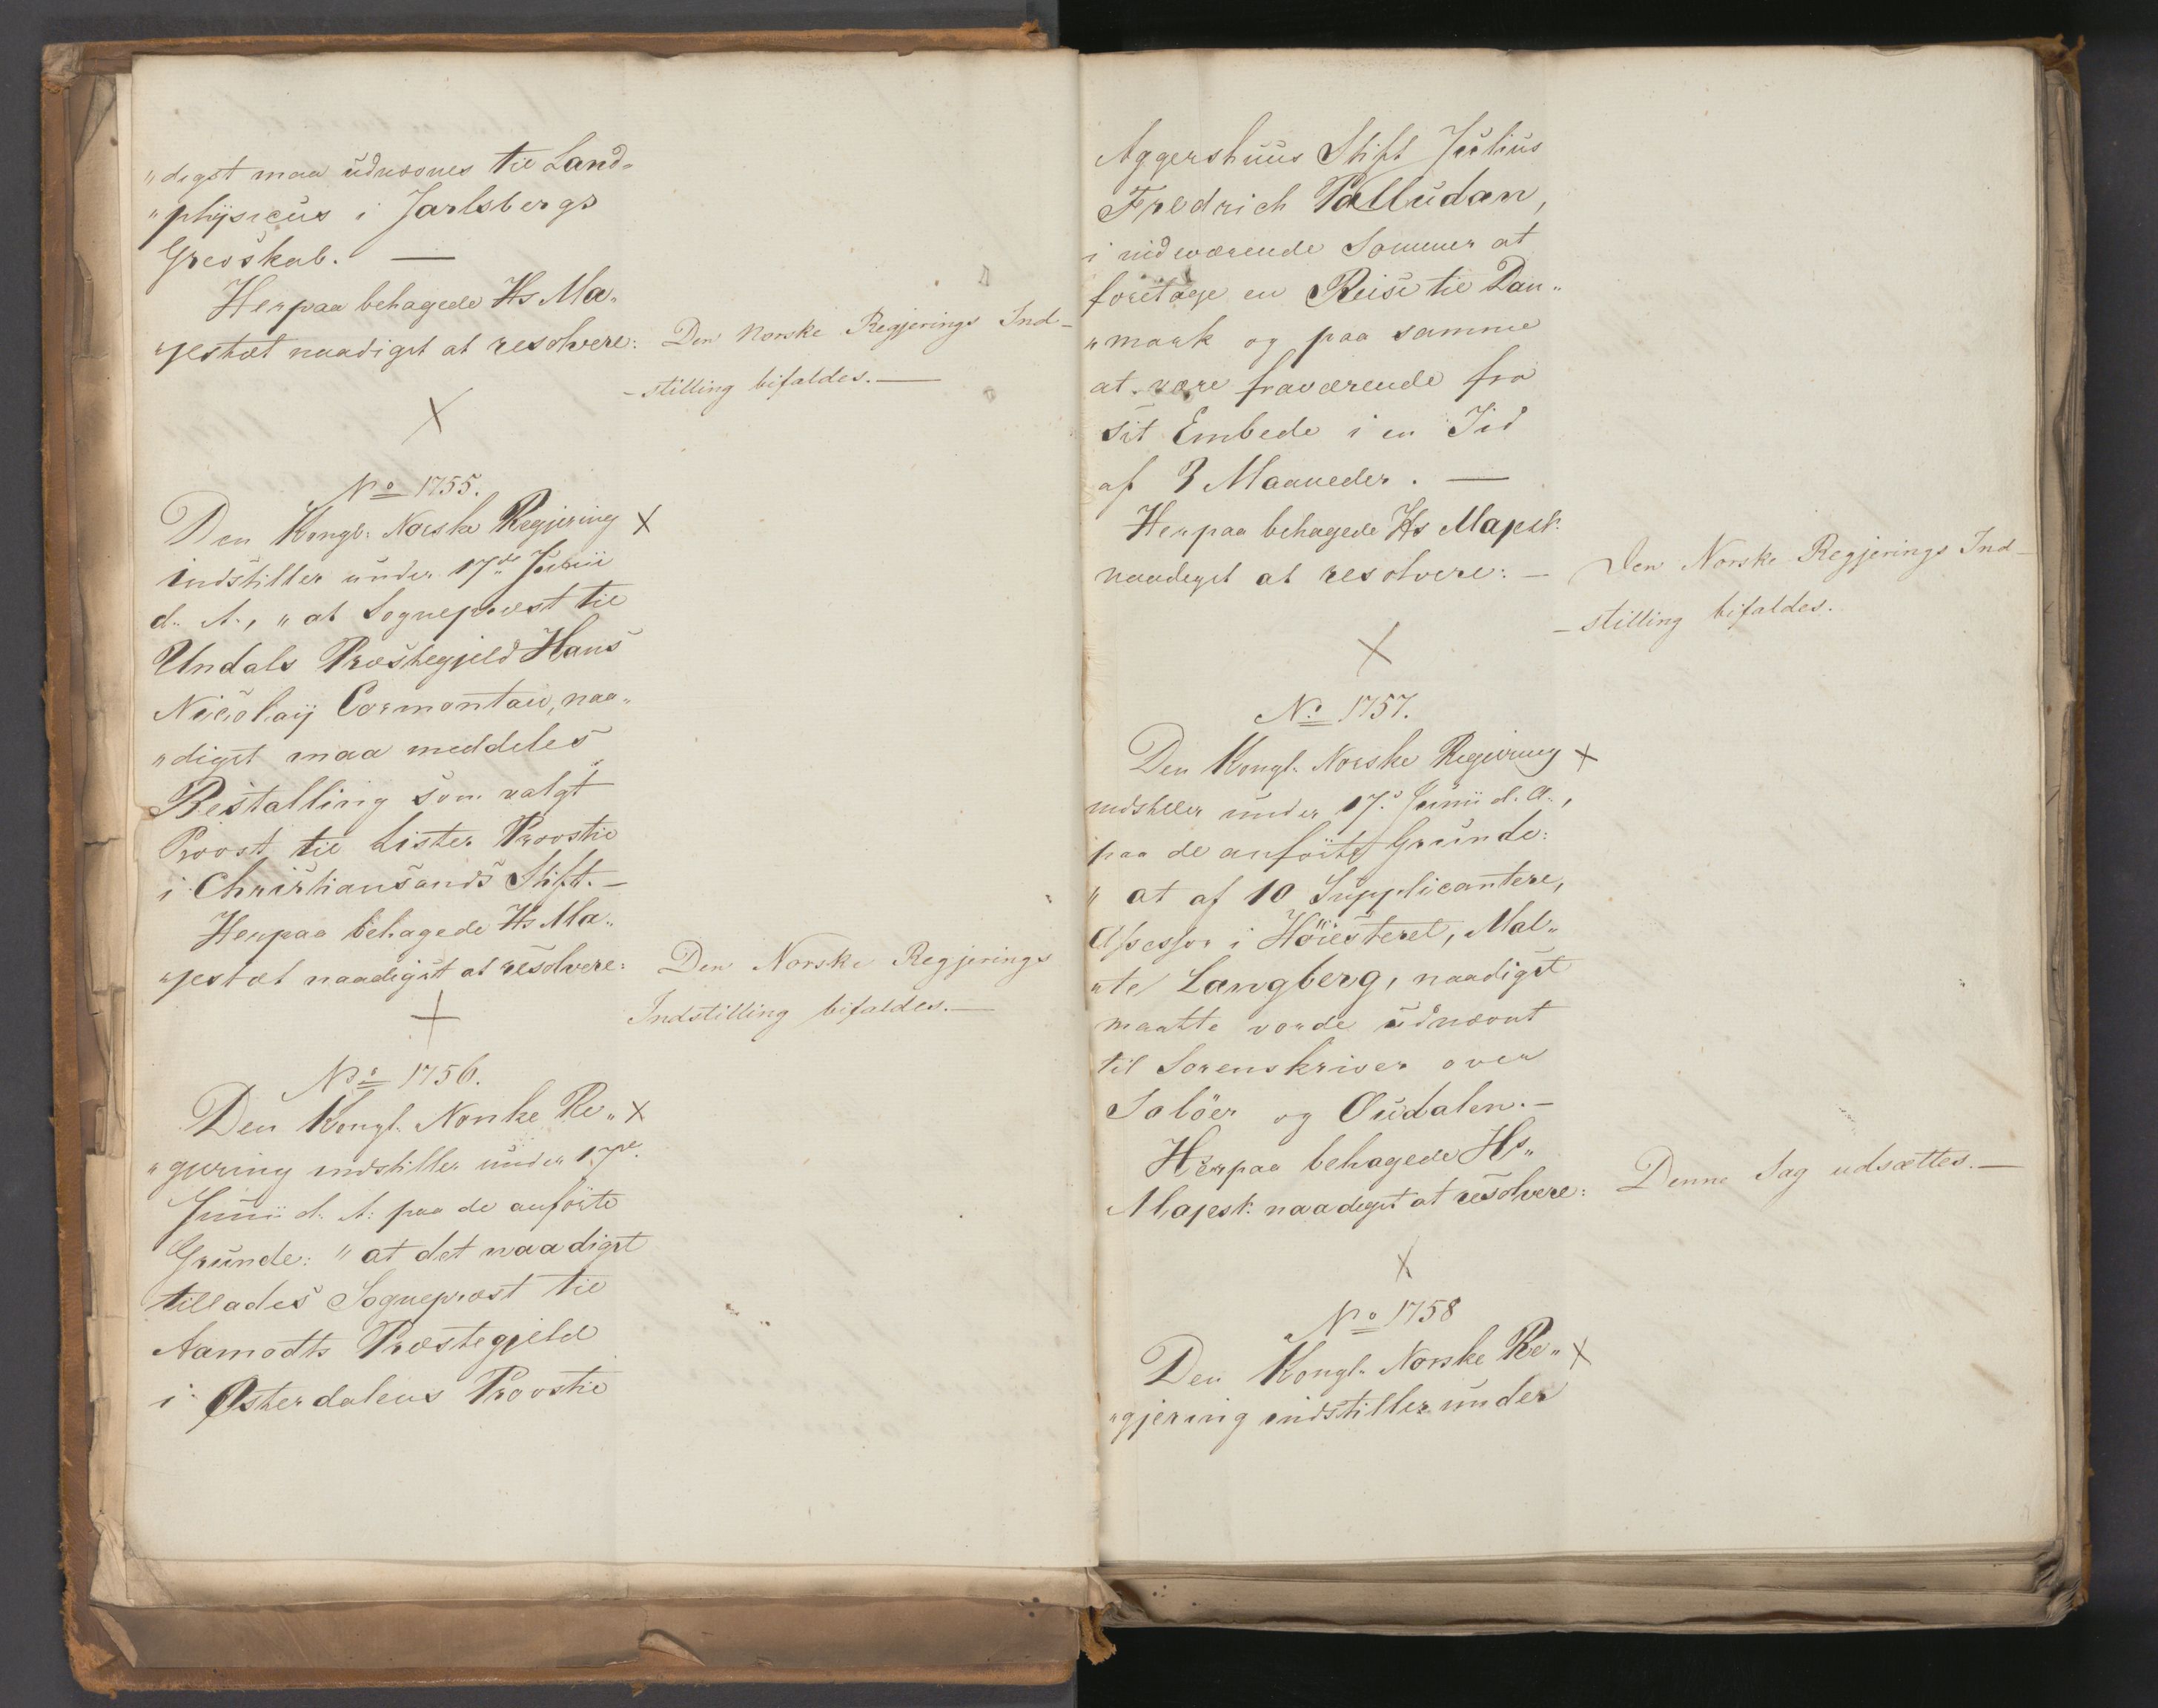 „digst maa udnævnes til Land-
„physicus i Jarlsbergs
Grevskab. —
Herpaa behagede Hs Ma„
„jestæt naadigst at resolvere:
Den Norske Regjerings Ind-
-stilling bifaldes. —
X
No 1755.
Den Kongl: Norske Regjering X
indstiller under 17de Junii
d. A., „at Sogneprest til
Undals Præstegjeld Hans
Nicolaij Cormontan, naa„
„digst maa meddeles
Bestalling som valgt
Provst til Lister Provstie
i Christiansands Stift. —
Herpaa behagede Hs Ma„
„jestæt naadigst at resolvere:
Den Norske Regjerings
Indstilling bifaldes. —
X
No 1756.
Den Kongl. Norske Re„ X
„gjering indstiller under 17de
Junii d. A: paa de anförte
Grunde: „at det naadigst
tillades Sogneprest til
Aamodts Præstegjeld
i Østerdalens Provstie
Aggershuus Stift Julius
Fredrich Palludan,
i nidværende Sommer at
foretage en Reise til Dan„
„mark og paa samme
at være fraværende fra
sit Embede i en Tid
af 3 Maaneder. —
Herpaa behagede Hs Majest.
naadigst at resolvere: —
Den Norske Regjerings Ind-
-stilling bifaldes.
X
No 1757.
Den Kongl. Norske Regjering X
indstiller under 17de Junii d. A.,
paa de anförte Grunde:
„at af 10 Supplicantere,
Assessor i Höiesteret, Mal„
„te Langberg, naadigst
maatte vorde udnævnt
til Sorenskriver over
Solöer og Oudalen. —
Herpaa behagede Hs„
Majest: naadigst at resolvere:
Denne Sag udsættes. —
X
No 1758
Den Kongl. Norske Re„ X
„gjering indstiller under